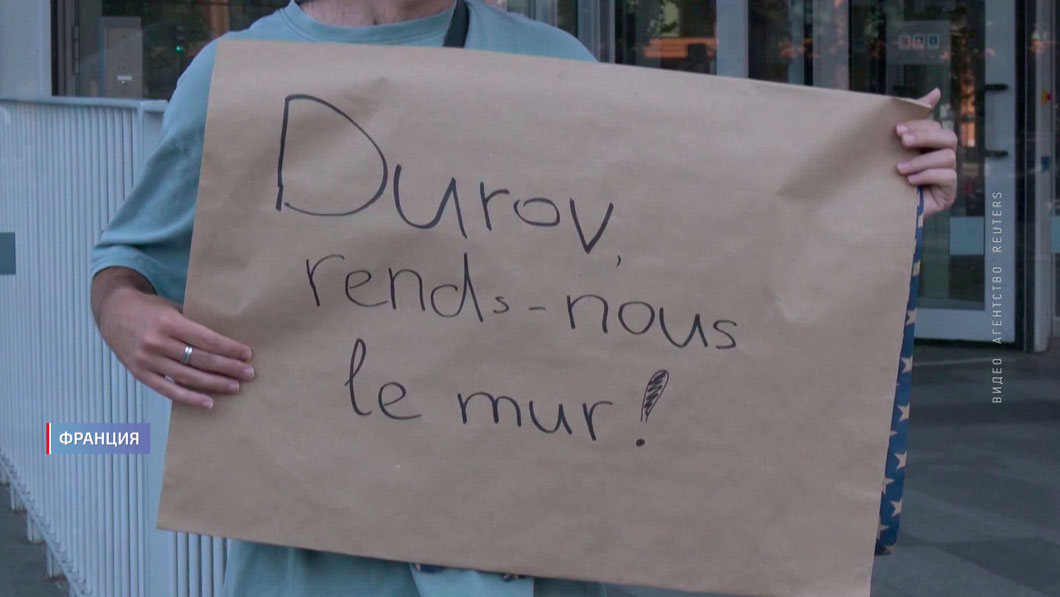 Durov,
rends-nous
le mur!
ФРАНЦИЯ
ВИДЕО АГЕНТСТВО REUTERS